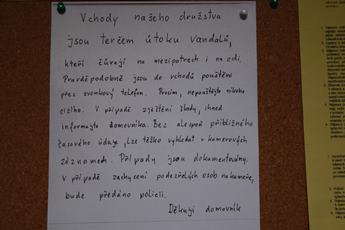 Vchody našeho družstva
jsou terčem útoku vandalů,
kteří čůrají na mezipatrech i na zdi.
Pravděpodobně jsou do vchodů pouštěni
přes zvonkový telefon. Prosím, nepouštějte nikoho
cizího. V případě zjištění škody, ihned
informujte domovníka. Bez alespoň přibližného
časového údaje, lze těžko vyhledat v kamerových
záznamech. Případy jsou dokumentovány.
V případě zachycení podezřelých osob na kameře,
bude předáno policii.
Děkuji domovník